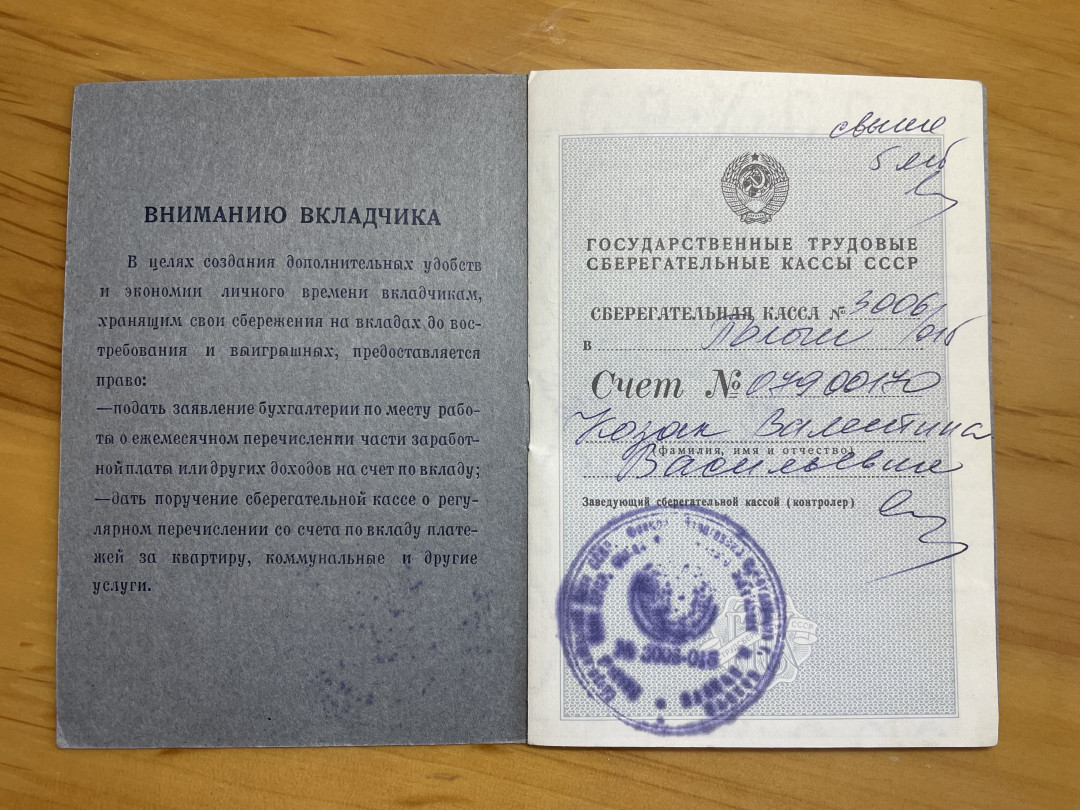 ВНИМАНИЮ ВКЛАДЧИКА
В целях создания дополнительных удобств
и экономии личного времени вкладчикам,
хранящим свои сбережения на вкладах до вос-
требования и выигрышных, предоставляется
право:
—подать заявление бухгалтерии по месту рабо-
ты о ежемесячном перечислении части заработ-
ной платы или других доходов на счет по вкладу;
—дать поручение сберегательной кассе о регу-
лярном перечислении со счета по вкладу плате-
жей за квартиру, коммунальные и другие
услуги.
свыше
5
ГОСУДАРСТВЕННЫЕ ТРУДОВЫЕ
СБЕРЕГАТЕЛЬНЫЕ КАССЫ СССР
СБЕРЕГАТЕЛЬНАЯ КАССА № 3006/
в 016
Счет № 07900170
Козак Валентина
(фамилия, имя и отчество)
Васильевна
Заведующий сберегательной кассой (контролер)
№ 3006-016